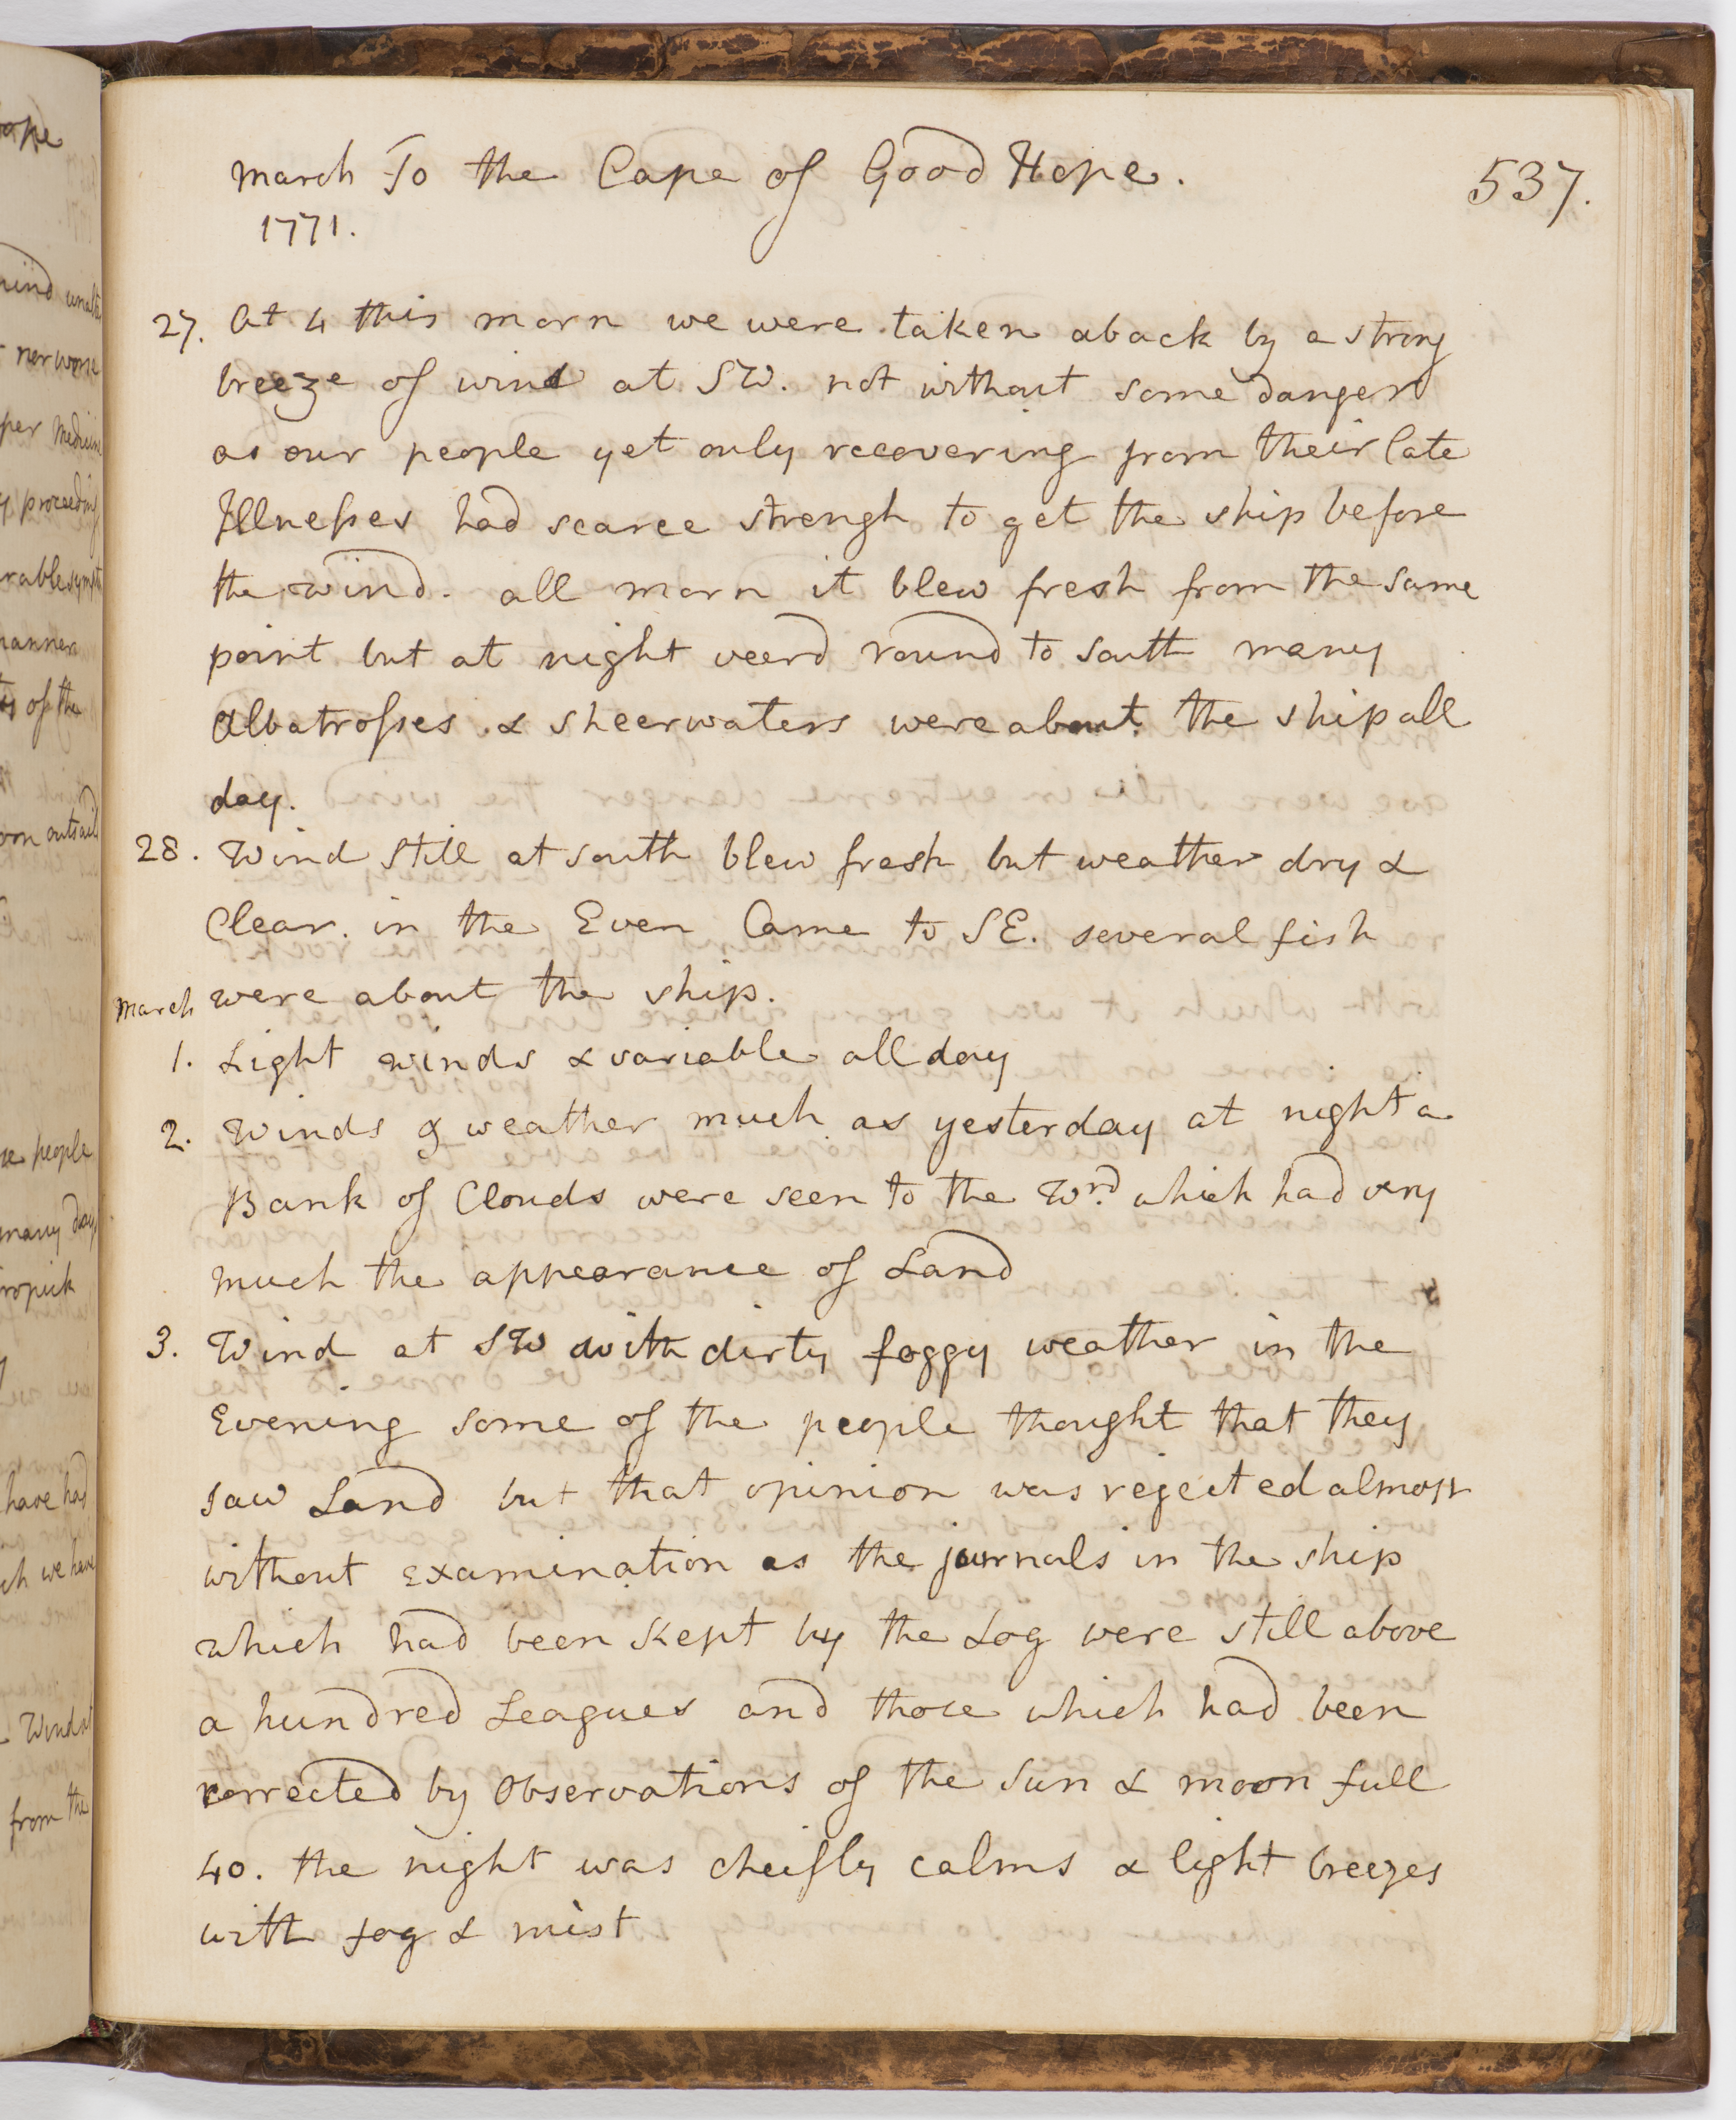 March To the Cape of Good Hope. 537.
1771.
27. At 4 this morn we were taken aback by a strong
breeze of wind at SW. not without some danger
as our people yet only recovering from their late
Illnesses had scarce strengh to get the ship before
the wind. all morn it blew fresh from the same
point but at night veerd round to South many
Albatrosses & sheerwaters were about the ship all
day.
28. Wind still at south blew fresh but weather dry &
Clear. in the Even Came to SE. several fish
March were about the ship.
1. Light winds & variable all day
2. Winds & weather much as yesterday at night a
Bank of Clouds were seen to the Wrd. which had very
much the appearance of Land
3. Wind at SW with dirty foggy weather in the
Evening some of the people thought that they
saw Land but that opinion was rejected almost
without examination as the journals in the ship
which had been kept by the Log were still above
a hundred Leagues and those which had been
corrected by Observations of the Sun & moon full
40. the night was cheifly calms & light breezes
with fog & mist